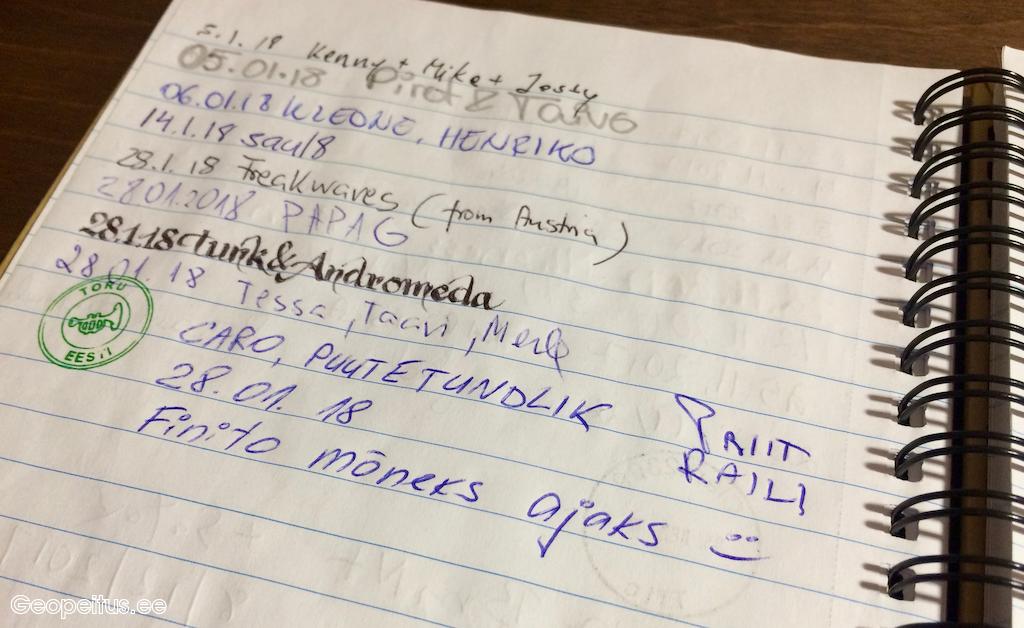 5.1.18 Kenny + Mike + Jossy
05.01.18 Piret & Tano
06.01.18 KLEONE, HENRIKO
14.1.18 saul8
28.1.18 Freakwaves (from Austria)
28.01.2018 PAPAG
28.1.18 tunk & Andromeda
28.01.18 Tessa, Taavi, Merle
TORU
EESTI
CARO, PUUTETUNDLIK
28.01.18
PRIIT
RAILI
Finito mõneks ajaks :)
Geopeitus.ee